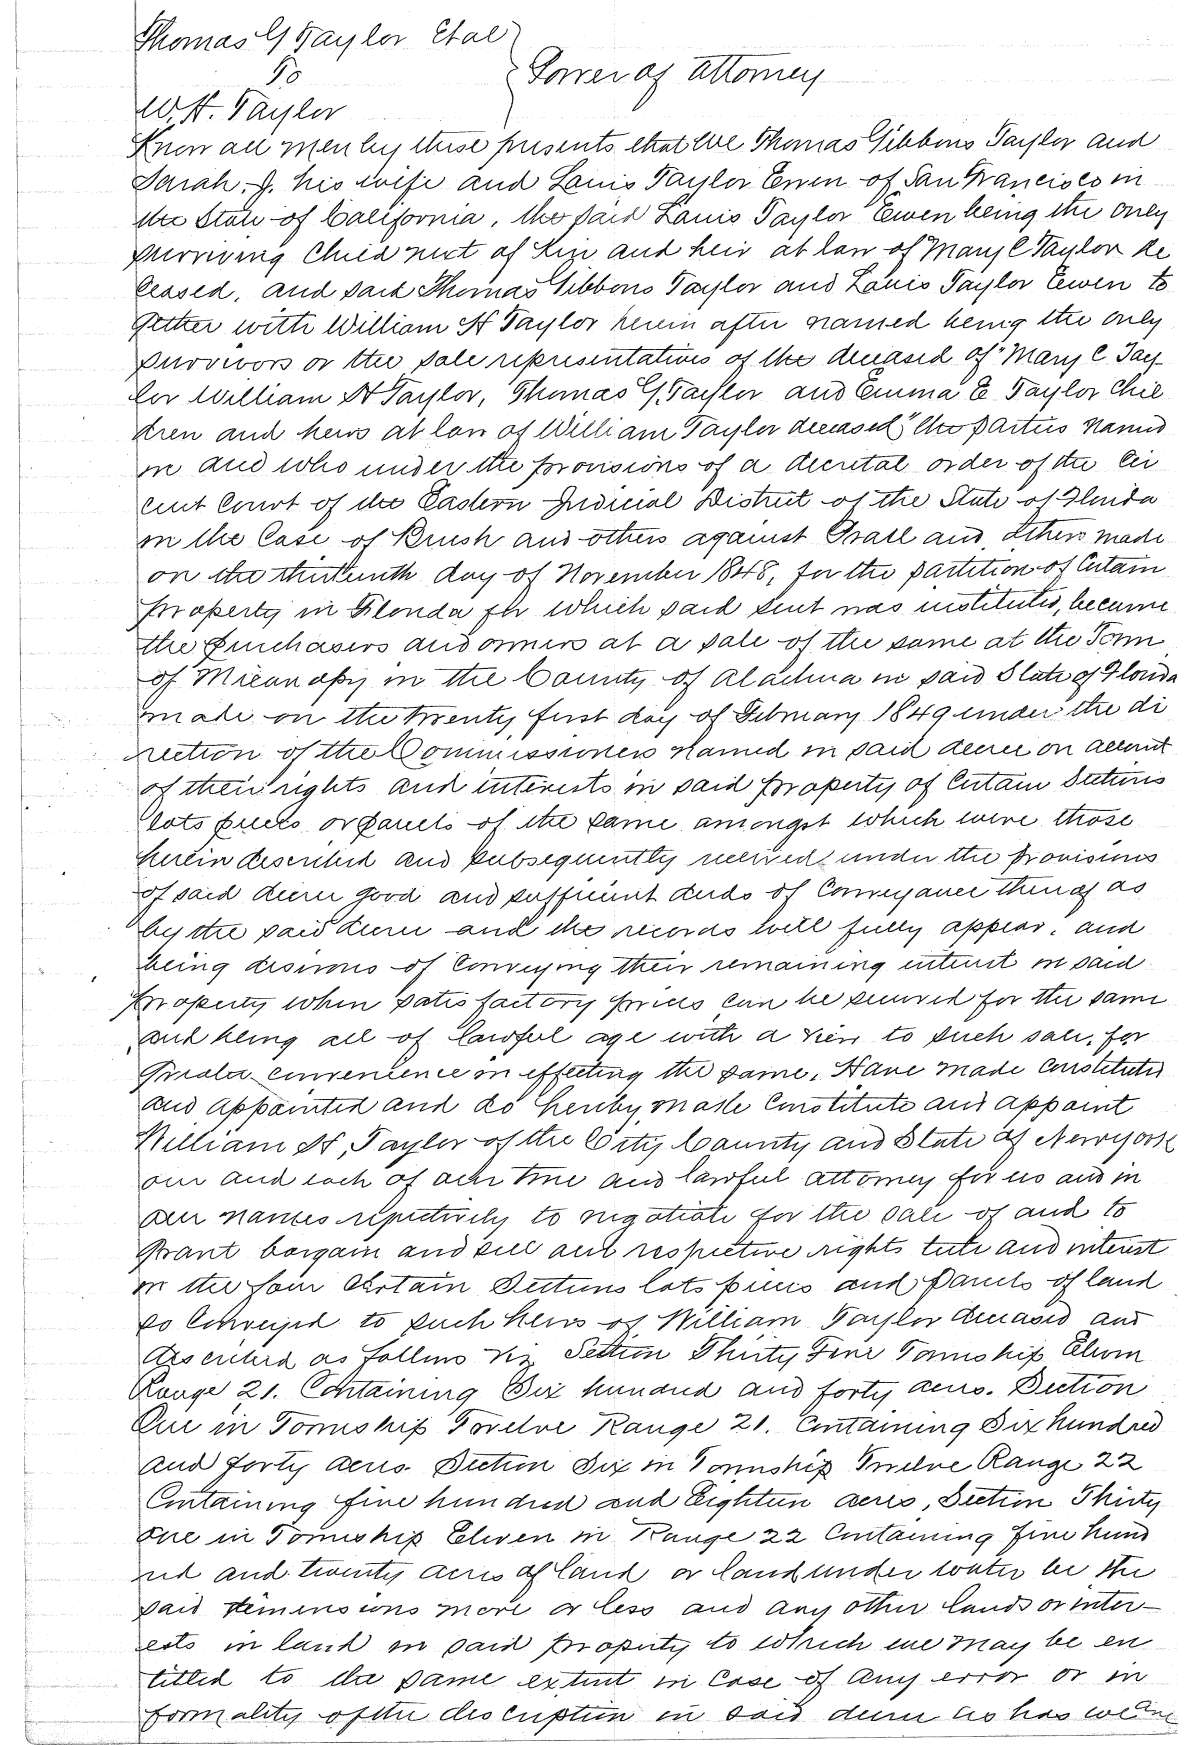 Thomas G Taylor Etal
To
Power of attorney
W. H. Taylor
Know all men by these presents that We Thomas Gibbons Taylor and
Sarah. J. his wife and Louis Taylor Ewen of San Francisco in
the State of California, the said Louis Taylor Ewen being the only
surviving Child next of kin and heir at law of Mary C Taylor de
ceased, and said Thomas Gibbons Taylor and Louis Taylor Ewen to
gether with William H Taylor herein after named being the only
survivors or the sole representatives of the deceased of "Mary C Tay
lor William H Taylor, Thomas G. Taylor and Emma E Taylor Chil
dren and heirs at law of William Taylor deceased" the parties named
in and who under the provisions of a decretal order of the Cir
cuit Court of the Eastern Judicial District of the State of Florida
in the Case of Brush and others against and others made
on the thirteenth day of November 1848, for the partition of Certain
property in Florida for which said suit was instituted, became
the purchasers and owners at a sale of the same at the Town
of Micanopy in the County of Alachua in said State of Florida
made on the twenty first day of February 1849 under the di
rection of the Commissioners named in said decree on account
of their rights and interests in said property of Certain Sections
lots pieces or parcels of the same amongst which were those
herein described and subsequently received under the provisions
of said decree good and sufficient deeds of Conveyance thereof as
by the said decree and the records will fully appear, and
being desirous of Conveying their remaining interest in said
property when satisfactory prices can be secured for the same
and being all of lawful age with a view to such sale, for
greater convenience in effecting the same, Have made constituted
and appointed and do hereby make Constitute and appoint
William H, Taylor of the City County and State of New york
our and each of our true and lawful attorney for us and in
our names repectively to negotiate for the sale of and to
Grant bargain and sell our respective rights title and interest
in the four Certain Sections lots pieces and parcels of land
so Conveyed to such heirs of William Taylor deceased and
described as follows viz Section Thirty Five Township Eleven
Range 21. Containing Six hundred and forty acres. Section
One in Township Twelve Range 21. Containing Six hundred
and forty acres. Section Six in Township Twelve Range 22
Containing five hundred and Eighteen acres, Section Thirty
one in Township Eleven in Range 22 Containing five hund
red and twenty acres of land or land under water be the
said dimensions more or less and any other lands or inter-
ests in land in said property to which we may be en
titled to the same extent in Case of any error or in
formality of the description in said deeds as has